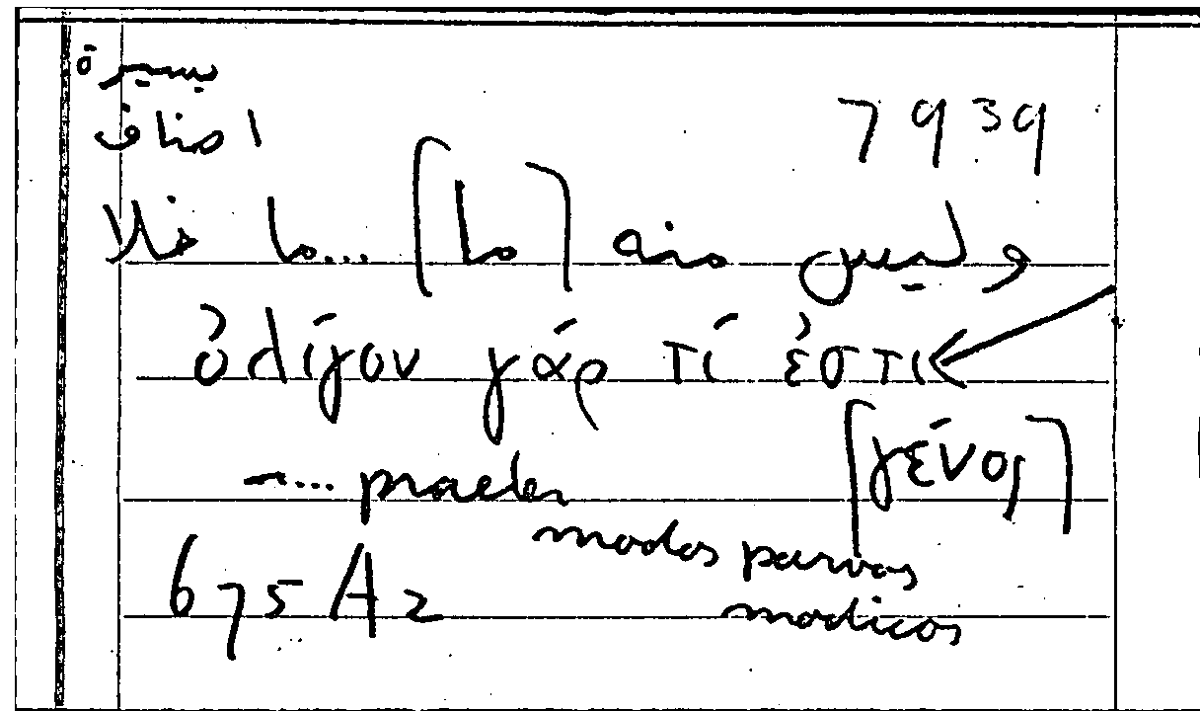 يسيرة
اصناف
7939
وليس منه [ما] ...ما خلا
ὀλίγον γάρ τί ἐστι
[γένος]
... praeter
modos parvos
modicos
675A2